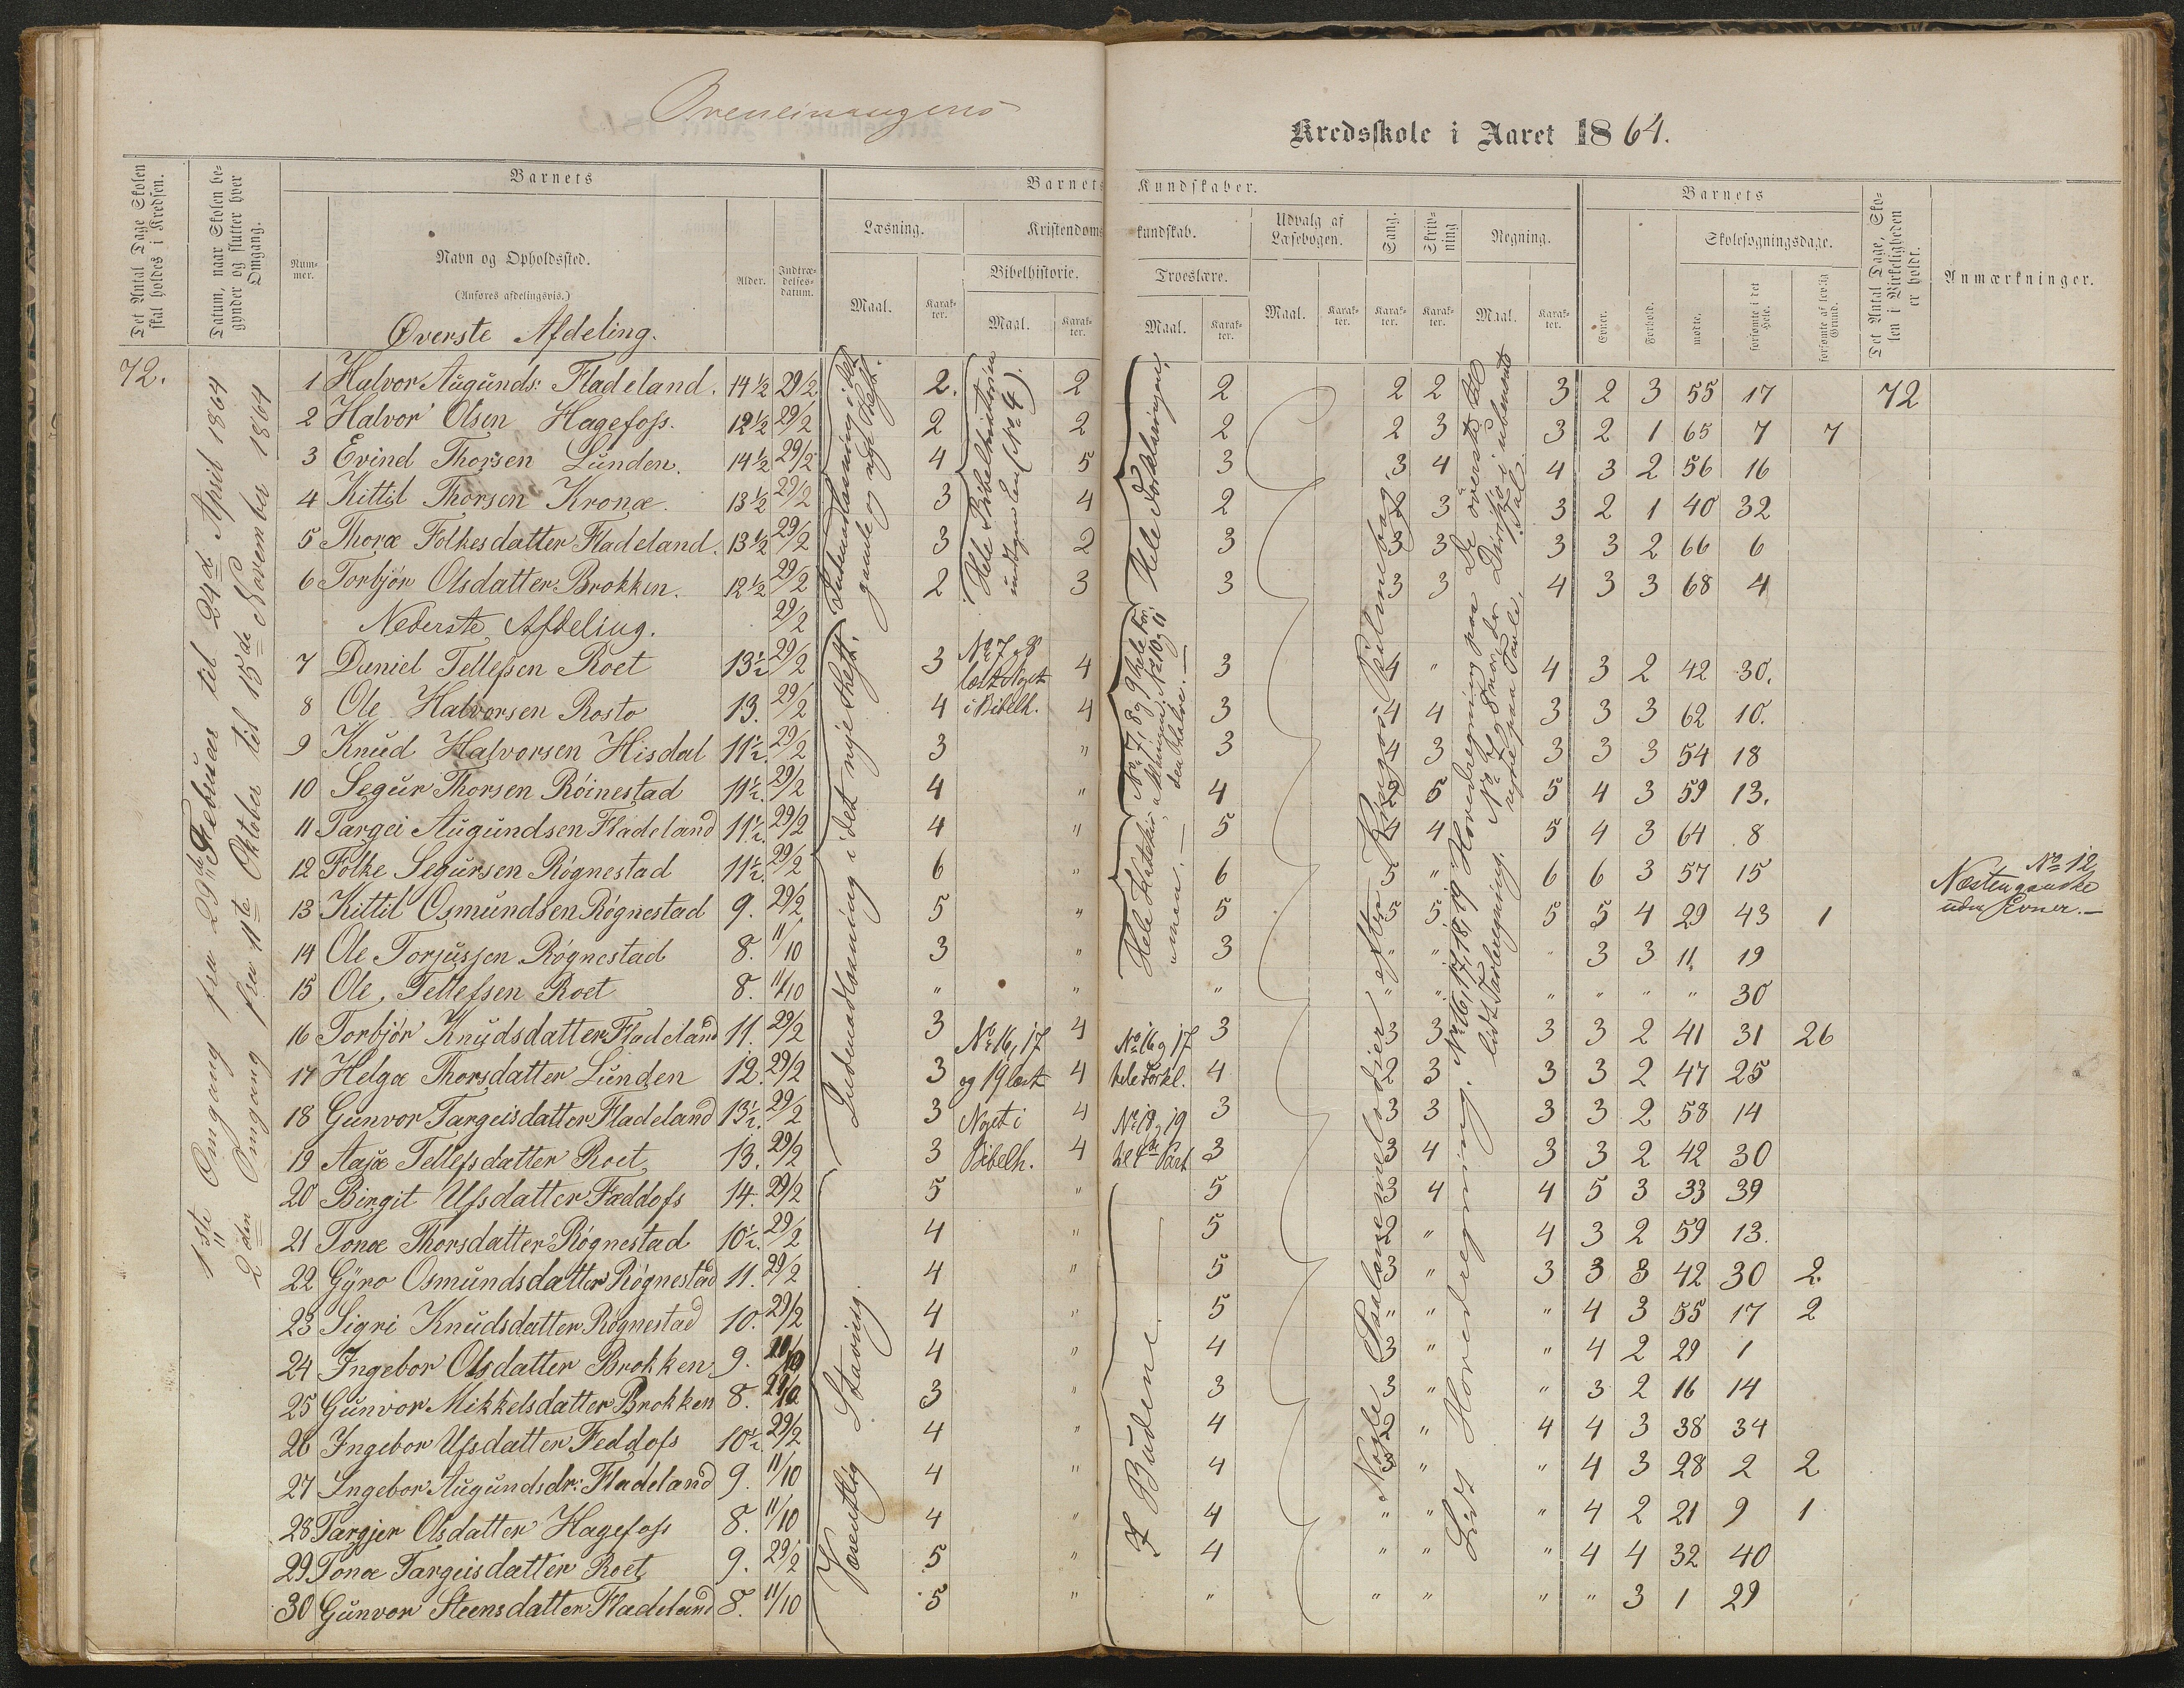 Kredsskole i Aaret 1864.
Det Antal Dage Skolen skal holdes i Kredsen.
Datum, naar Skolen begynder og slutter hver Omgang.
Barnets
Num-mer.
Navn og Opholdssted.
(Anføres afdelingsvis.)
Alder.
Indtræ-delses-datum.
Barnets Kundskaber.
Læsning.
Maal.
Karak-ter.
Kristendomskundskab.
Bibelhistorie.
Maal.
Karak-ter.
Troeslære.
Maal.
Karak-ter.
Udvalg af Læsebogen.
Maal.
Karak-ter.
Sang.
Karak-ter.
Skriv-ning
Karak-ter.
Regning.
Maal.
Karak-ter.
Barnets
Evner.
Forhold.
Skolesøgningsdage.
mødte.
forsømte i det Hele.
forsømte af lovlig Grund.
Det Antal Dage, Sko-len i Virkeligheden er holdt.
Anmærkninger.
72.
1ste Omgang fra 29de Februar til 24de April 1864
2den Omgang fra 11te Oktober til 15de November 1864
Øverste Afdeling.
1 Halvor Augunds: Fladeland. 14½ 29/2 2. 2 2 2 2 3 2 3 55 17 72
2 Halvor Olsen Hagefoss. 12½ 29/2 2 2 2 2 3 3 2 1 65 7 7
3 Evind Thorsen Lunden. 14½ 29/2 4 5 3 3 4 4 3 2 56 16
4 Kittil Thorsen Kronæ. 13½ 29/2 3 4 2 2 3 3 2 1 40 32
5 Thoræ Folkesdatter Fladeland. 13½ 29/2 3 2 3 3 3 3 3 2 66 6
6 Torbjör Olsdatter Brokken. 12½ 29/2 2 3 3 3 3 4 3 3 68 4
Nederste Afdeling. 29/2
7 Daniel Tellefsen Roet 13½ 29/2 3 4 3 4 " 4 3 2 42 30.
8 Ole Halvorsen Rosto 13. 29/2 4 4 3 4 4 3 3 3 62 10.
9 Knud Halvorsen Hisdal 11½. 29/2 3 " 3 4 3 3 3 3 54 18
10 Segur Thorsen Röinestad 11½. 29/2 4 " 4 2 5 5 4 3 59 13.
11 Targei Augundsen Fladeland 11½. 29/2 4 " 5 4 4 5 4 3 64 8
12 Folke Segursen Rögnestad 11½. 29/2 6 " 6 5 " 6 6 3 57 15
13 Kittil Osmundsen Rögnestad 9. 29/2 5 " 5 5 5 5 5 4 29 43 1
14 Ole Torjussen Rögnestad 8. 11/10 3 " 3 " " " 3 3 11 19
15 Ole Tellefsen Roet 8. 11/10 " " " " " " " " " 30
16 Torbjör Knudsdatter Fladeland 11. 29/2 3 4 3 3 3 3 3 2 41 31 26
17 Helga Thorsdatter Lunden 12. 29/2 3 4 4 2 3 3 3 2 47 25
18 Gunvor Targeisdatter Fladeland 13½. 29/2 3 4 3 3 3 3 3 2 58 14
19 Aasæ Tellefsdatter Roet 13. 29/2 3 4 3 3 4 3 3 2 42 30
20 Birgit Ufsdatter Fæddofs 14. 29/2 5 " 5 3 4 4 5 3 33 39
21 Tonæ Thorsdatter Rögnestad 10½. 29/2 4 " 5 2 " 4 3 2 59 13.
22 Gyro Osmundsdatter Rögnestad 11. 29/2 4 " 5 3 " 3 3 3 42 30 2
23 Sigri Knudsdatter Rögnestad 10. 29/2 4 " 5 " " " 4 3 55 17 2
24 Ingebor Olsdatter Brokken 9. 4 " 4 3 " " 4 2 29 1
25 Gunvor Mikkelsdatter Brokken 8. 3 " 3 3 " " 3 2 16 14
26 Ingebor Ufsdatter Feddofs 10½. 29/2 4 " 4 2 " 4 4 3 38 34
27 Ingebor Augundsdr: Fladeland 9. 11/10 4 " 4 3 " " 4 3 28 2 2
28 Targjer Olsdatter Hagefoss 8. 11/10 4 " 4 " " " 4 2 21 9 1
29 Tonæ Targeisdatter Roet 9. 29/2 5 " 4 " " " 4 4 32 40
30 Gunvor Steensdatter Fladeland 8. 11/10 5 " " " " " " 3 1 29
Indenadlæsning i det gamle og nye Heft.
Indenadlæsning i det nye Heft.
Væsentlig Stavning.
Hele Bibelhistorien undtagen Een (No 4).
No 7 og 8 læst Noget i Bibelh.
No 16, 17 og 19 læst Noget i Bibelh.
Hele Forklaringen,
No 7, 8 og 9 hele For. No 10 og 11 den Halve. —
Hele Katekis.
No 16 og 17 hele Forkl.
No 18 og 19 til 4de Part
I Budene.
Nogle Psalmemelodier efter
De överste
No 16, 17, 18, 19 Hovedregning lidt Tavleregning.
Lidt Hovedregning.
No 12 Næsten ganske uden Evner.—